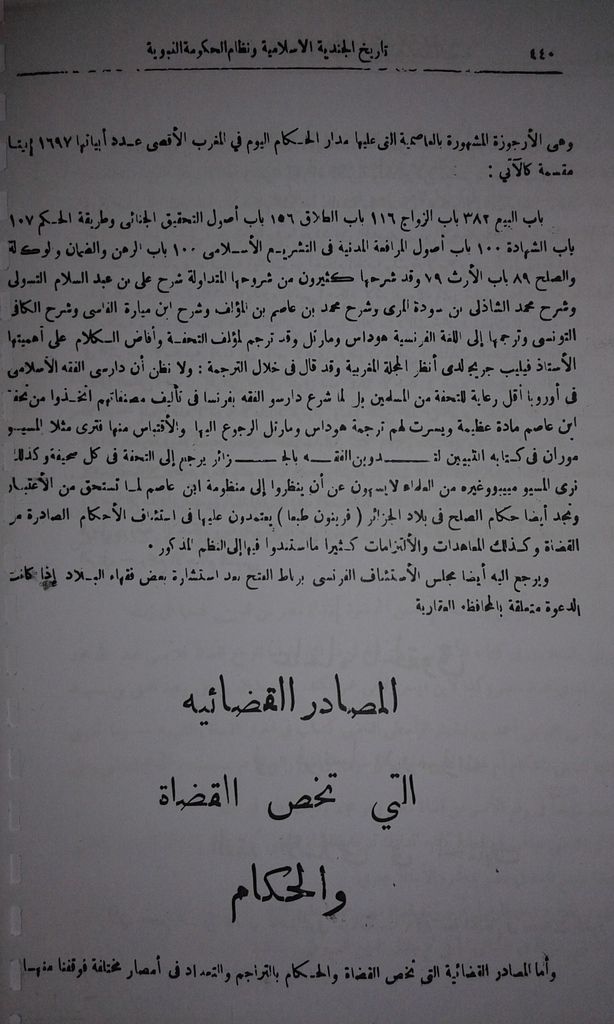 ٤٤٠ تاريخ الجندية الاسلامية ونظام الحكومة النبوية
وهى الأرجوزة المشهورة بالعاصمية التى عليها مدار الحكام اليوم في المغرب الأقصى عدد أبياتها ١٦٩٧ إيتا
مقسمة كالآتي :
باب البيع ٣٨٢ باب الزواج ١١٦ باب الطلاق ١٥٦ باب أصول التحقيق الجنائى وطريقة الحكم ١٠٧
باب الشهادة ١٠٠ باب أصول المرافعة المدنية فى التشريع الأسلامى ١٠٠ باب الرهن والضمان ولوكالة
والصلح ٨٩ باب الأرث ٧٩ وقد شرحها كثيرون من شروحها المتداولة شرح على بن عبد السلام التسولى
وشرح محمد الشاذلى بن سودة المرى وشرح محمد بن عاصم بن المؤلف وشرح ابن ميارة الفاسى وشرح الكافى
التونسى وترجمها إلى اللغة الفرنسية هوداس ومارتل وقد ترجم لمؤلف التحفة وأفاض الكلام على أهميتها
الأستاذ فيليب جريج لدى أنظر المجلة المغربية وقد قال فى خلال الترجمة : ولا نظن أن دارسى الفقه الأسلامى
فى أوروبا أقل رعاية للتحفة من المسلمين بل لما شرع دارسو الفقه بفرنسا فى تأليف مصنفاتهم اتخذوا من تحفة
ابن عاصم مادة عظيمة ويسرت لهم ترجمة هوداس ومارتل الرجوع اليها والأقتباس منها فترى مثلا المسيو
موران فى كتابه الثمينين لتدوين الفقه بالجزائر يرجع إلى التحفة فى كل صحيفة وكذلك
نرى المسيو ميببو وغيره من العلماء لا يسهون عن أن ينظروا إلى منظومة ابن عاصم لما تستحق من الأعتبار
ونجد أيضا حكام الصلح فى بلاد الجزائر ( فرينون طبعا ) يعتمدون عليها فى استئناف الأحكام الصادرة من
القضاة وكذلك المعاهدات والألتزامات كثيرا ما استندوا فيها إلى النظم المذكور .
ويرجع اليه أيضا مجلس الأستئناف الفرنسى برباط الفتح بعد استشارة بعض فقهاء البلاد إذا كانت
الدعوة متعلقة بالمحافظه العقارية
المصادر االقضائيه
التي تخص االقضاة
والحكام
وأما المصادر القضائية التى تخص القضاة والحكام بالتراجم والتعداد فى أمصار مختلفة فوقفنا منها